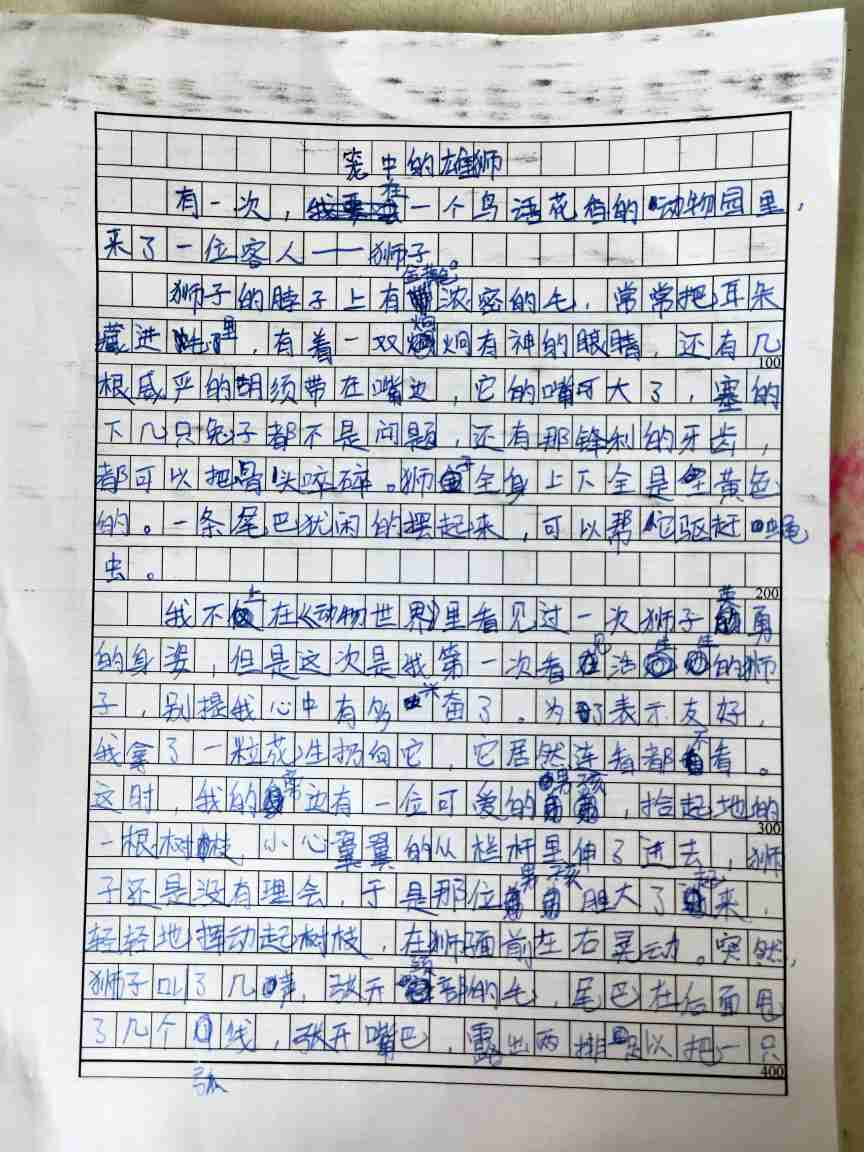 笼中的雄狮
有一次，在一个鸟语花香的动物园里，
来了一位客人——狮子。
狮子的脖子上有金黄色浓密的毛，常常把耳朵
藏进毛里，有着一双炯炯有神的眼睛，还有几
100
根威严的胡须带在嘴边，它的嘴可大了，塞的
下几只兔子都不是问题，还有那锋利的牙齿，
都可以把骨头咬碎。狮子全身上下全是金黄色
的。一条尾巴犹闲的摆起来，可以帮它驱赶蝇
虫。
200
我不止在《动物世界》里看见过一次狮子英勇
的身姿，但是这次是我第一次看见活生生的狮
子，别提我心中有多兴奋了。为了表示友好，
我拿了一粒花生扔向它，它居然连看都不看。
这时，我的旁边有一位可爱的男孩，拾起地的
300
一根树枝，小心翼翼的从栏杆里伸了进去，狮
子还是没有理会，于是那位男孩胆大了起来，
轻轻地挥动起树枝，在狮子面前左右晃动。突然，
狮子叫了几声，张开颈部的毛，尾巴在后面甩
了几个弧线，张开嘴巴，露出两排足以把一只
400